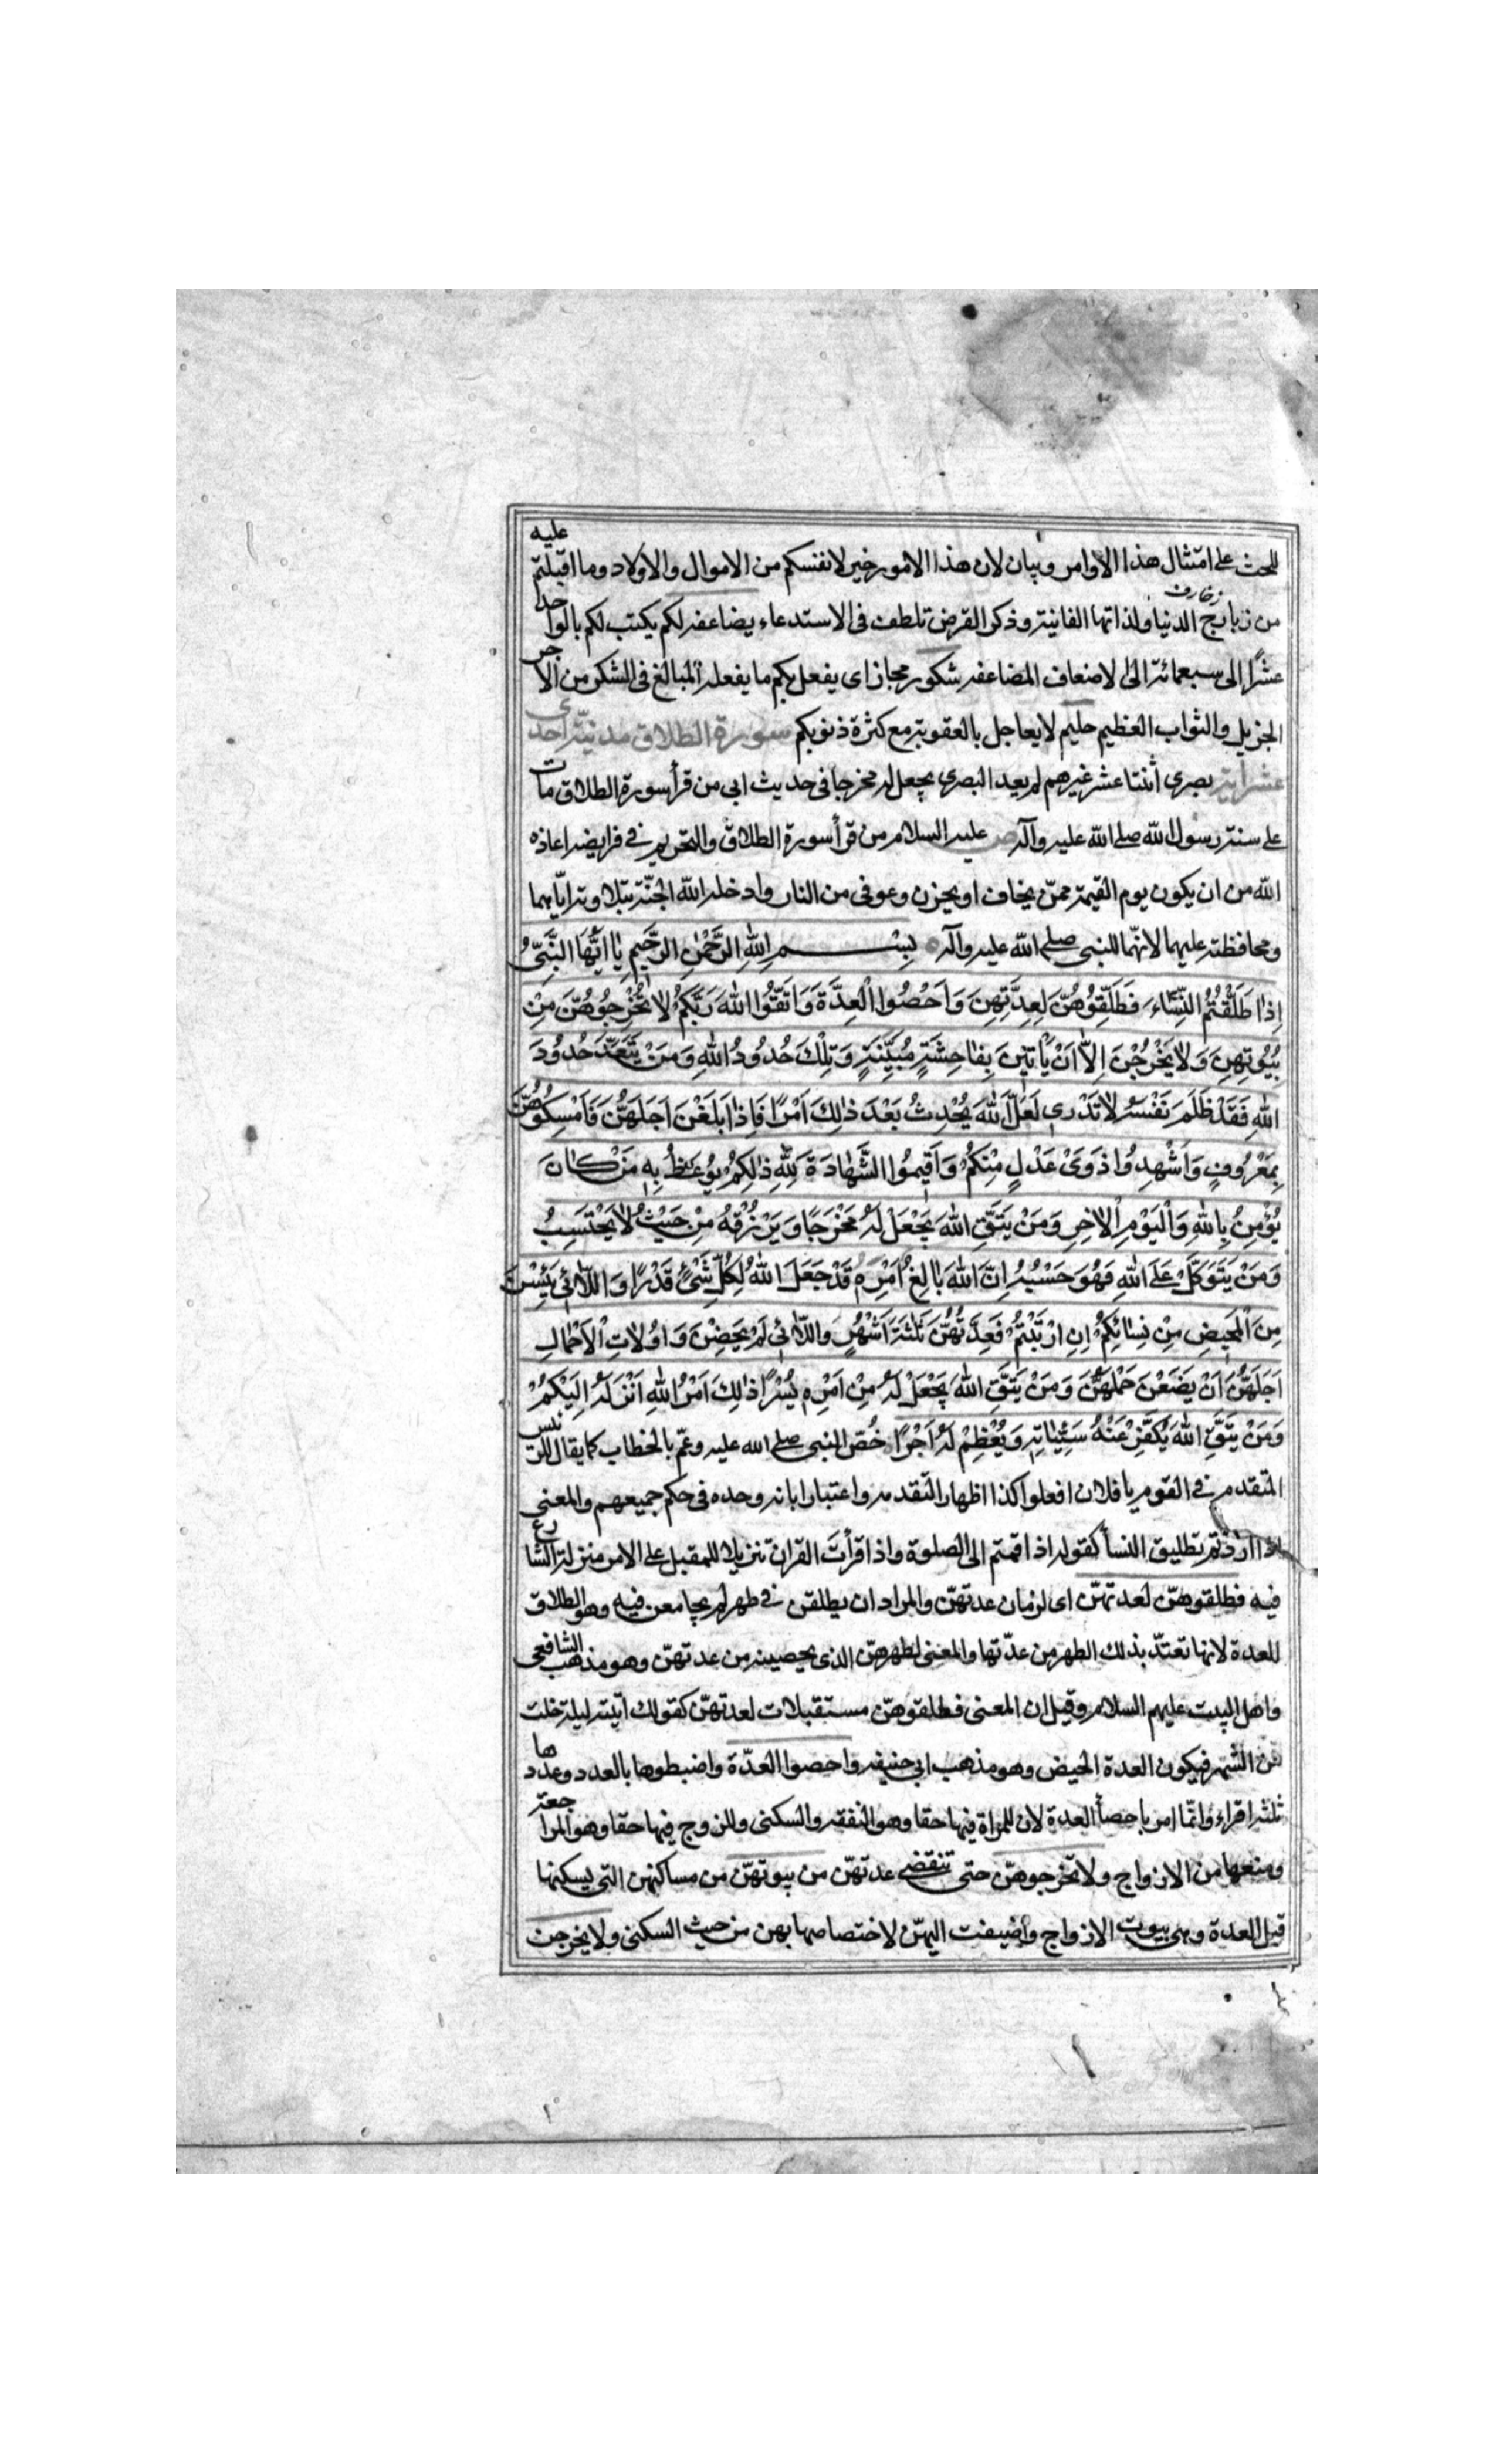 للحث على امتثال هذا الاوامر وبيان لان هذا الامور خير لانفسكم من الاموال والاولاد وما اقبلتم عليه
من زبارج الدنيا ولذاتها الفانية وذكر القرض تلطف فى الاستدعاء يضاعفه لكم يكتب لكم بالواحد
زخارف
عشرًا الى سبعمائة الى لاضعاف المضاعفه شكور مجاز اى يفعل بكم ما يفعله المبالغ فى الشكر من الاجر
الجزيل والثواب العظيم حليم لا يعاجل بالعقوبة مع كثرة ذنوبكم سورة الطلاق مدنيّة احدى
عشر اية بصرى اثنتا عشر غيرهم لم يعد البصرى يجعل له مخرجا فى حديث ابى من قرأ سورة الطلاق مات
على سنة رسول الله صلى الله عليه وآله ص عليه السلام من قرأ سورة الطلاق والتحريم فى فرايضه اعاذه
الله من ان يكون يوم القيمة ممّن يخاف او يحزن وعوفى من النار وادخله الله الجنّة بتلاوته ايّاهما
ومحافظته عليهما لانهّما للنبى صلى الله عليه وآله بِسْمِ اللهِ الرَّحْمٰنِ الرَّحِيمِ يٰا اَيُّهَا النَّبِىُّ
اِذٰا طَلَّقْتُمُ النِّسٰاءَ فَطَلِّقُوهُنَّ لِعِدَّتِهِنَ وَاَحْصُوا الْعِدَّةَ وَاتَّقُوا اللهَ رَبَّكُمْ لٰا تُخْرِجُوهُنَّ مِنْ
بُيُوتِهِنَ وَلٰا يَخْرُجْنَ اِلّٰا اَنْ يَاْتٖينَ بِفٰاحِشَةٍ مُبَيِّنَةٍ وَتِلْكَ حُدُودُ اللهِ وَمَنْ يَتَعَدَّ حُدُودَ
اللهِ فَقَدْ ظَلَمَ نَفْسَهُ لٰا تَدْرى لَعَلَّ اللهَ يُحْدِثُ بَعْدَ ذٰلِكَ اَمْرًا فَاِذٰا بَلَغْنَ اَجَلَهُنَّ فَاَمْسِكُوهُنَّ
بِمَعْرُوفٍ وَاَشْهِدُوا ذَوَىْ عَدْلٍ مِنْكُمْ وَاَقٖيمُوا الشَّهٰادَةَ لِلّٰهِ ذٰلِكُمْ يُوعَظُ بِهٖ مَنْ كٰانَ
يُؤْمِنُ بِاللهِ وَالْيَوْمِ الْاٰخِرِ وَمَنْ يَتَّقِ اللهَ يَجْعَلْ لَهُ مَخْرَجًا وَيَرْزُقْهُ مِنْ حَيْثُ لٰا يَحْتَسِبُ
وَمَنْ يَتَوَكَّلْ عَلَى اللهِ فَهُوَ حَسْبُهُ اِنَّ اللهَ بٰالِغُ اَمْرِهٖ قَدْ جَعَلَ اللهُ لِكُلِّ شَىْءٍ قَدْرًا وَاللّٰائى يَئِسْنَ
مِنَ الْمَحٖيضِ مِنْ نِسٰائِكُمْ اِنِ ارْتَبْتُمْ فَعِدَّتُهُنَّ ثَلٰثَةُ اَشْهُرٍ وَاللّٰائى لَمْ يَحِضْنَ وَاُولٰاتِ الْاَحْمٰالِ
اَجَلُهُنَّ اَنْ يَضَعْنَ حَمْلَهُنَّ وَمَنْ يَتَّقِ اللهَ يَجْعَلْ لَهُ مِنْ اَمْرِهٖ يُسْرًا ذٰلِكَ اَمْرُ اللهِ اَنْزَلَهُ اِلَيْكُمْ
وَمَنْ يَتَّقِ اللهَ يُكَفِّرْ عَنْهُ سَيِّئٰاتِهٖ وَيُعْظِمْ لَهُ اَجْرًا خُصّ النبى صلى الله عليه وعمّ بالخطاب كما يقال للرئيس
المتقدم فى القوم يا فلان افعلوا كذا اظهارا لتقدمه واعتبارا بانه وحده فى حكم جميعهم والمعنى
اذا اردتم تطليق النسأ كقوله اذا قمتم الى الصلوة واذا قرأت القران تنزيلا للمقبل على الامر منزلة الشارع
فيه فطلقوهنّ لعدتهنّ اى لزمان عدتهنّ والمراد ان يطلقن فى طهر لم يجامعن فيه وهو الطلاق
للعدة لانها تعتدّ بذلك الطهر من عدّتها والمعنى لطهرهنّ الذى يحصينه من عدتهنّ وهو مذهب الشافعى
واهل البيت عليهم السلام وقيل ان المعنى فطلقوهنّ مستقبلات لعدتهنّ كقولك اتيته ليلة خلت
من الشهر فيكون العدة الحيض وهو مذهب ابى حنيفه واحصوا العدّة واضبطوها بالعدد وعدوها
ثلثه اقراء وانّما امر باحصأ العدة لان للمراة فيها حقا وهو النفقه والسكنى وللزوج فيها حقا وهو المراجعة
ومنعها من الازواج ولا تخرجوهنّ حتى تنقضى عدتهنّ من بيوتهنّ من مساكنهن التى يسكنها
قبل العدة وهى بيوت الازواج واضيفت اليهنّ لاختصاصها بهن من حيث السكنى ولا يخرجن